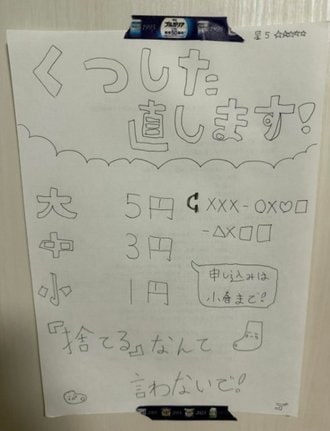 星5☆☆☆☆☆
くつした
直します!
大 5円
中 3円
小 1円
✆ XXX-OX♡□
-△X□□
申し込みは
小春まで!
『捨てる』なんて
言わないで!